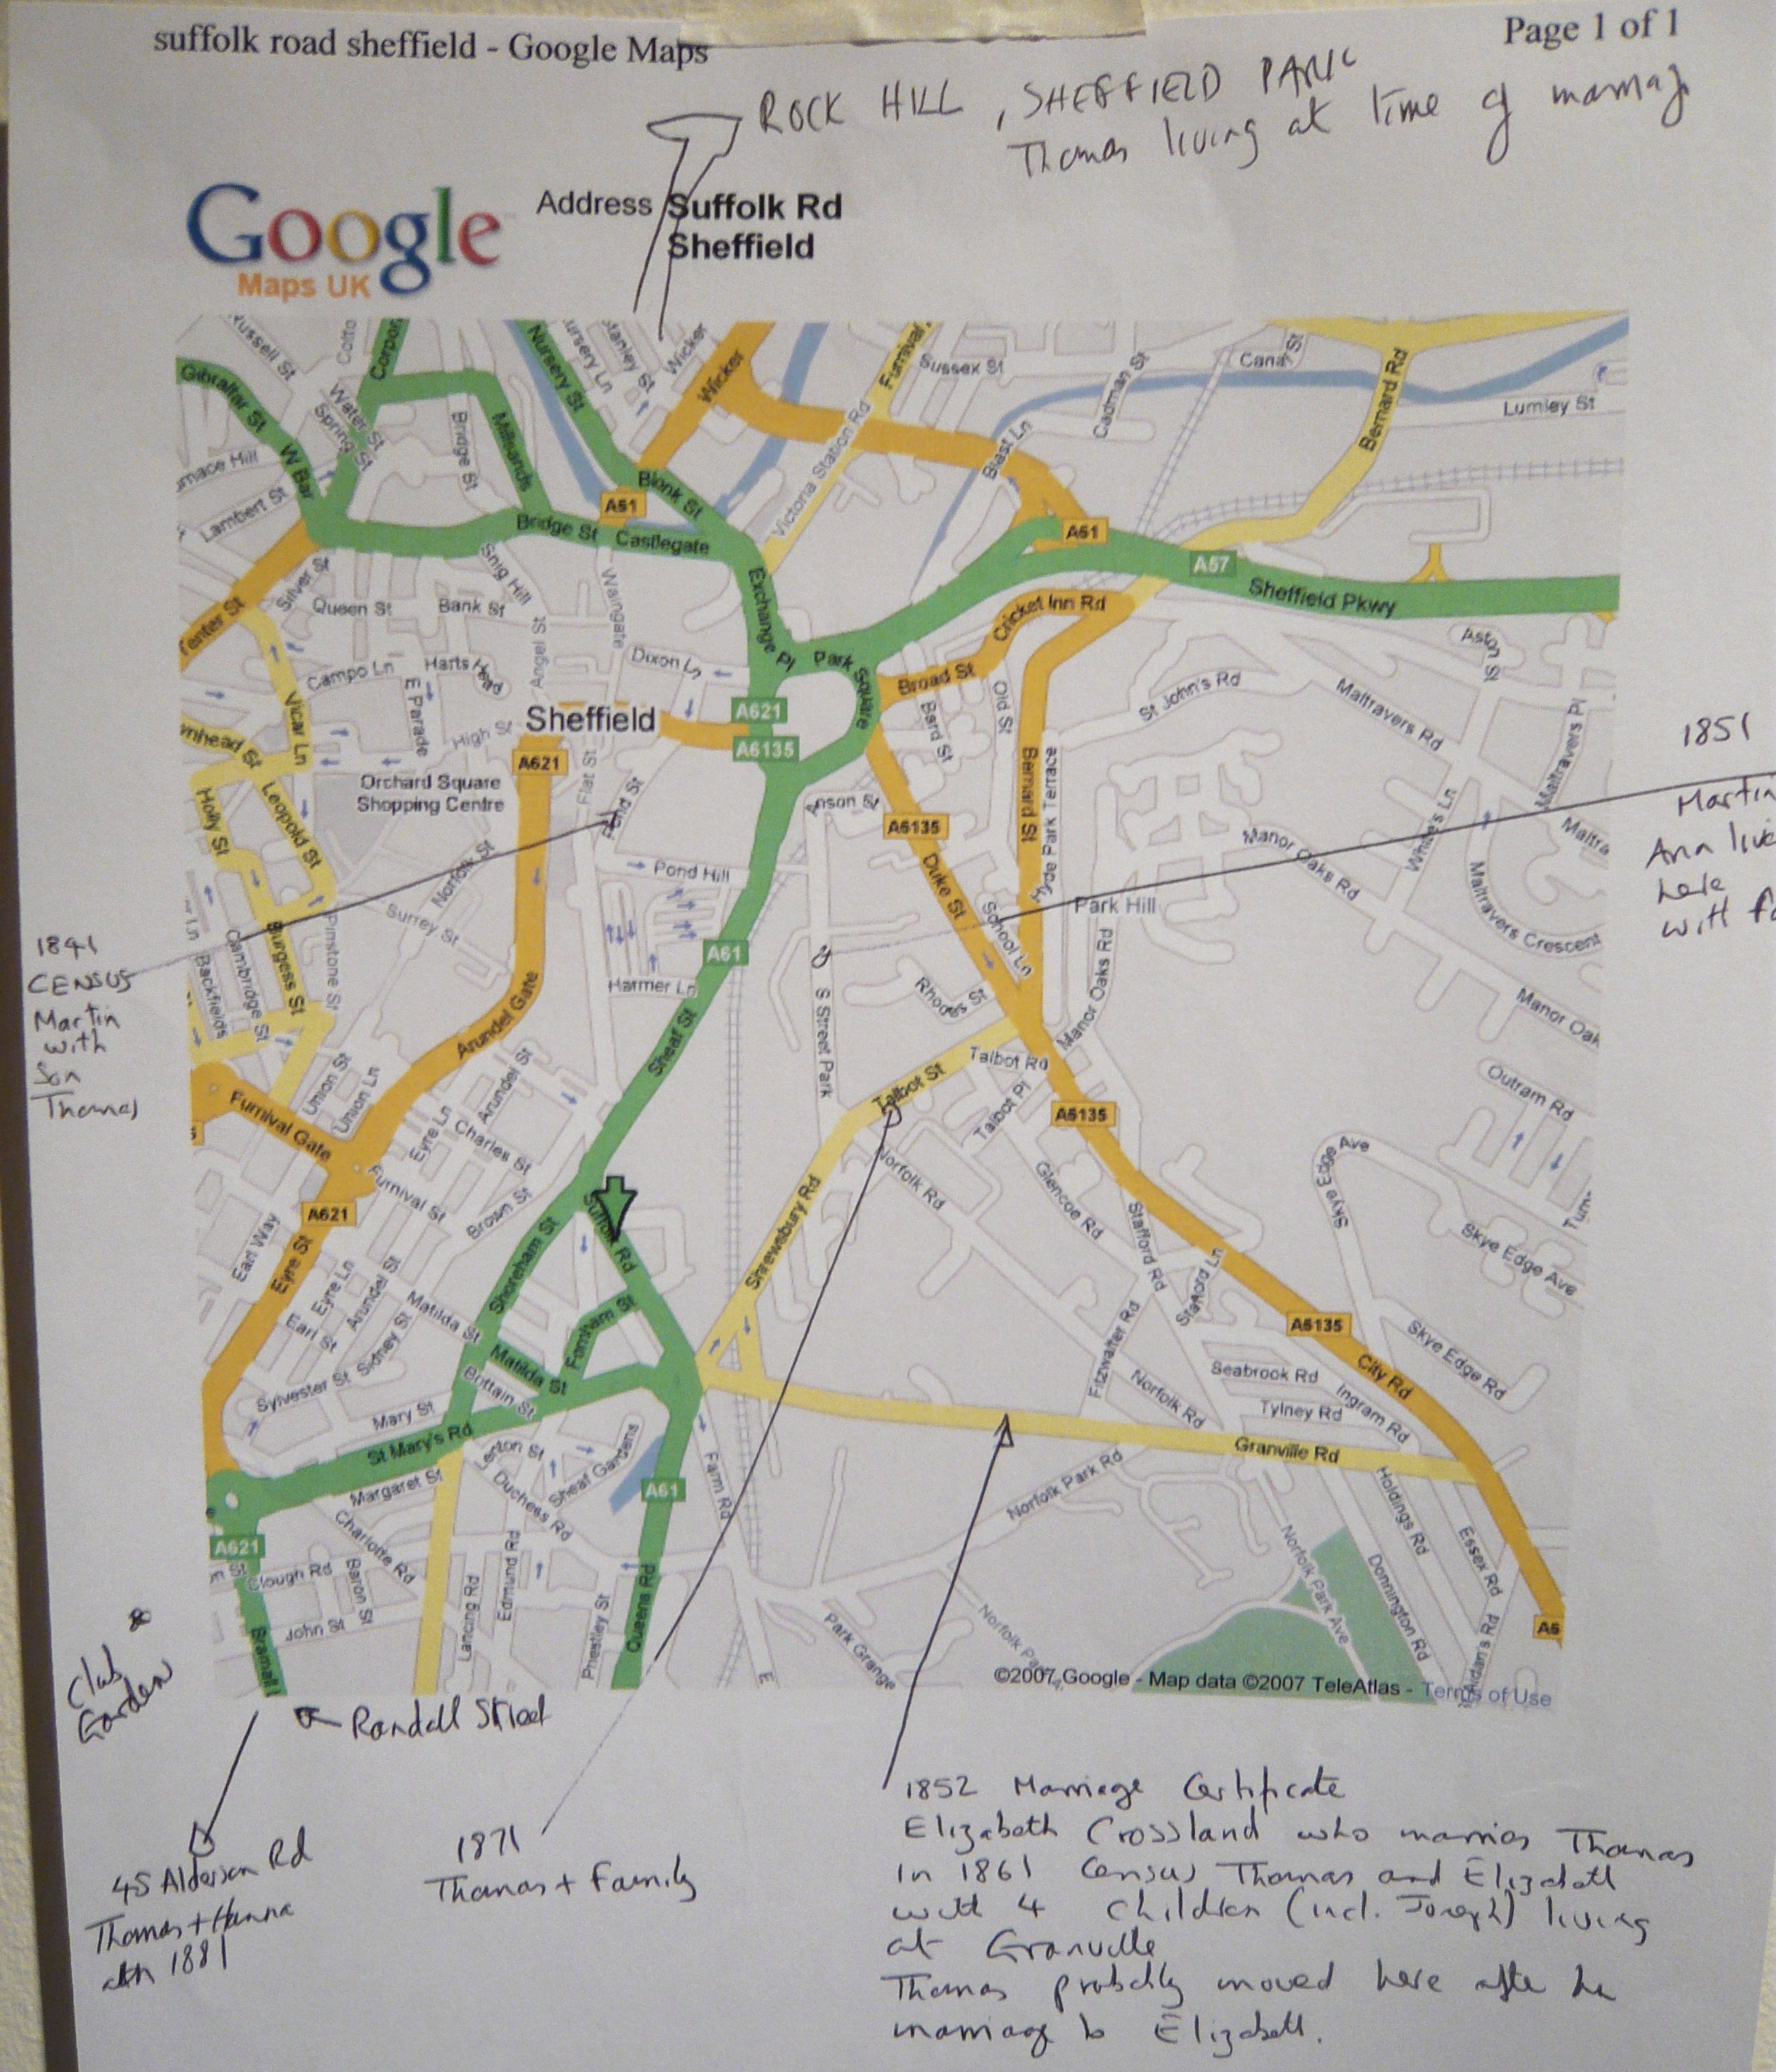 suffolk road sheffield - Google Maps
Page 1 of 1
ROCK HILL, SHEFFIELD PARK
Thomas living at time of marriag
Google
Maps UK
Address Suffolk Rd
Sheffield
Russell St
Cotto
Corpor
Nursery St
ursery Ln
Stanley St
Wicker
Wicker
Furnival
Sussex St
Cadman St
Canal St
Bernard Rd
Lumley St
Gibraltar St
Water St
Spring St
W Bar
Bridge St
Millsands
rnace Hill
Lambert St
Victoria Station Rd
Blast Ln
A61
Blonk St
Bridge St
Castlegate
A61
A57
Sheffield Pkwy
Snig Hill
Silver St
Queen St
Bank St
Waingate
Exchange Pl
Cricket Inn Rd
Tenter St
Campo Ln
Harts Head
Angel St
Dixon Ln
Park Square
Broad St
Aston St
E Parade
Vicar Ln
High St
Sheffield
A621
A6135
Bard St
Old St
St John's Rd
Maltravers Rd
Maltravers Pl
1851
rnhead St
A621
Orchard Square
Shopping Centre
Flat St
Pond St
Anson St
A6135
Bernard St
Hyde Park Terrace
Manor Oaks Rd
Maltra
Martin
Ann live
here
with fa
Holly St
Leopold St
Norfolk St
Pond Hill
Duke St
School Ln
Park Hill
Maltravers Crescent
Surrey St
1841
CENSUS
Martin
with
Son
Thomas
Burgess St
Cambridge St
Backfields
Pinstone St
A61
Harmer Ln
S Street Park
Rhodes St
Manor Oaks Rd
Manor Oak
Arundel Gate
Sheaf St
Talbot St
Talbot Rd
Talbot Pl
Outram Rd
Union St
Union Ln
Arundel St
Eyre Ln
Charles St
Furnival Gate
A6135
Skye Edge Ave
Furnival St
Brown St
Norfolk Rd
Glencoe Rd
Stafford Rd
Stafford Ln
A621
Suffolk Rd
Shrewsbury Rd
Skye Edge Ave
Earl Way
Eyre St
Eyre Ln
Arundel St
Shoreham St
Matilda St
Farnham St
Earl St
Sidney St
Fitzwalter Rd
A6135
City Rd
Skye Edge Rd
Matilda St
Brittain St
Sylvester St
Mary St
St Mary's Rd
Norfolk Rd
Seabrook Rd
Ingram Rd
Tylney Rd
Granville Rd
Lenton St
Sheaf Gardens
Margaret St
Duchess Rd
A61
Farm Rd
Norfolk Park Rd
Holdings Rd
Essex Rd
A621
Charlotte Rd
Clough Rd
Baron St
Edmund Rd
Norfolk Park Ave
Donnington Rd
John St
Lancing Rd
Priestley St
Queens Rd
Park Grange
A6
Bramall L
©2007 Google - Map data ©2007 TeleAtlas - Terms of Use
Club
Garden
Randall Street
45 Alderson Rd
Thomas + Hanna
1881
1871
Thomas + Family
1852 Marriage Certificate
Elizabeth Crossland who marries Thomas
In 1861 Census Thomas and Elizabeth
with 4 children (incl. Joseph) living
at Granville
Thomas probably moved here after he
marriage to Elizabeth.